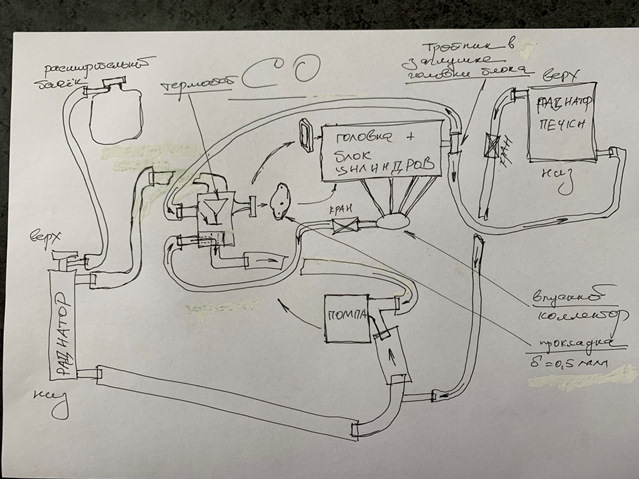 расширительный
бачёк
термостат
СО
Тройник в
заглушке
головки блока
верх
РАДИАТОР
ПЕЧКИ
низ
КРАН
ГОЛОВКА +
БЛОК
ЦИЛИНДРОВ
КРАН
верх
РАДИАТОР
низ
ПОМПА
впускной
коллектор
прокладка
δ=0,5 мм